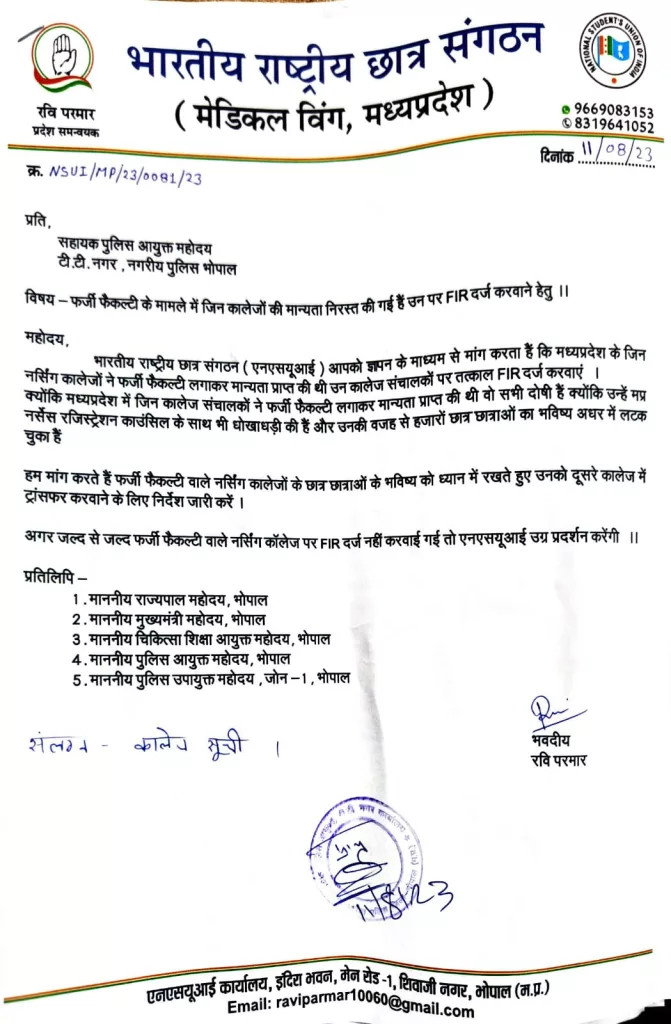 भारतीय राष्ट्रीय छात्र संगठन
( मेडिकल विंग, मध्यप्रदेश )
NATIONAL STUDENT'S UNION OF INDIA
रवि परमार
प्रदेश समन्वयक
9669083153
8319641052
दिनांक 11/08/23
क्र. NSUI/MP/23/0081/23
प्रति,
सहायक पुलिस आयुक्त महोदय
टी.टी. नगर , नगरीय पुलिस भोपाल
विषय – फर्जी फैकल्टी के मामले में जिन कालेजों की मान्यता निरस्त की गई हैं उन पर FIR दर्ज करवाने हेतु ।।
महोदय,
भारतीय राष्ट्रीय छात्र संगठन ( एनएसयूआई ) आपको ज्ञापन के माध्यम से मांग करता हैं कि मध्यप्रदेश के जिन
नर्सिंग कालेजों ने फर्जी फैकल्टी लगाकर मान्यता प्राप्त की थी उन कालेज संचालकों पर तत्काल FIR दर्ज करवाएं ।
क्योंकि मध्यप्रदेश में जिन कालेज संचालकों ने फर्जी फैकल्टी लगाकर मान्यता प्राप्त की थी वो सभी दोषी हैं क्योंकि उन्हें मप्र
नर्सेस रजिस्ट्रेशन काउंसिल के साथ भी धोखाधड़ी की हैं और उनकी वजह से हजारों छात्र छात्राओं का भविष्य अधर में लटक
चुका हैं
हम मांग करते हैं फर्जी फैकल्टी वाले नर्सिंग कालेजों के छात्र छात्राओं के भविष्य को ध्यान में रखते हुए उनको दूसरे कालेज में
ट्रांसफर करवाने के लिए निर्देश जारी करें ।
अगर जल्द से जल्द फर्जी फैकल्टी वाले नर्सिंग कॉलेज पर FIR दर्ज नहीं करवाई गई तो एनएसयूआई उग्र प्रदर्शन करेंगी ।।
प्रतिलिपि –
1. माननीय राज्यपाल महोदय, भोपाल
2. माननीय मुख्यमंत्री महोदय, भोपाल
3. माननीय चिकित्सा शिक्षा आयुक्त महोदय, भोपाल
4. माननीय पुलिस आयुक्त महोदय, भोपाल
5. माननीय पुलिस उपायुक्त महोदय , जोन –1, भोपाल
संलग्न - कालेज सूची ।
भवदीय
रवि परमार
11/8/23
एनएसयूआई कार्यालय, इंदिरा भवन, मेन रोड -1, शिवाजी नगर, भोपाल (म.प्र.)
Email: raviparmar10060@gmail.com